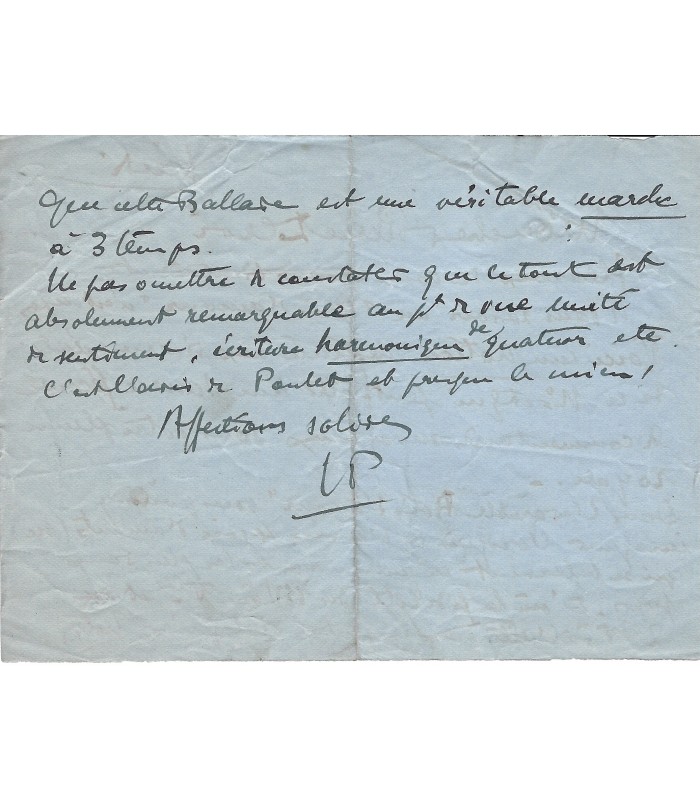 que cette Ballade est une véritable marche
à 3 temps. !
Ne pas omettre de constater que le tout est
absolument remarquable au pt de vue unité
de sentiment, écriture harmonique de quatuor etc.
C'est l'avis de Poulet et presque le mien !
Affections solides